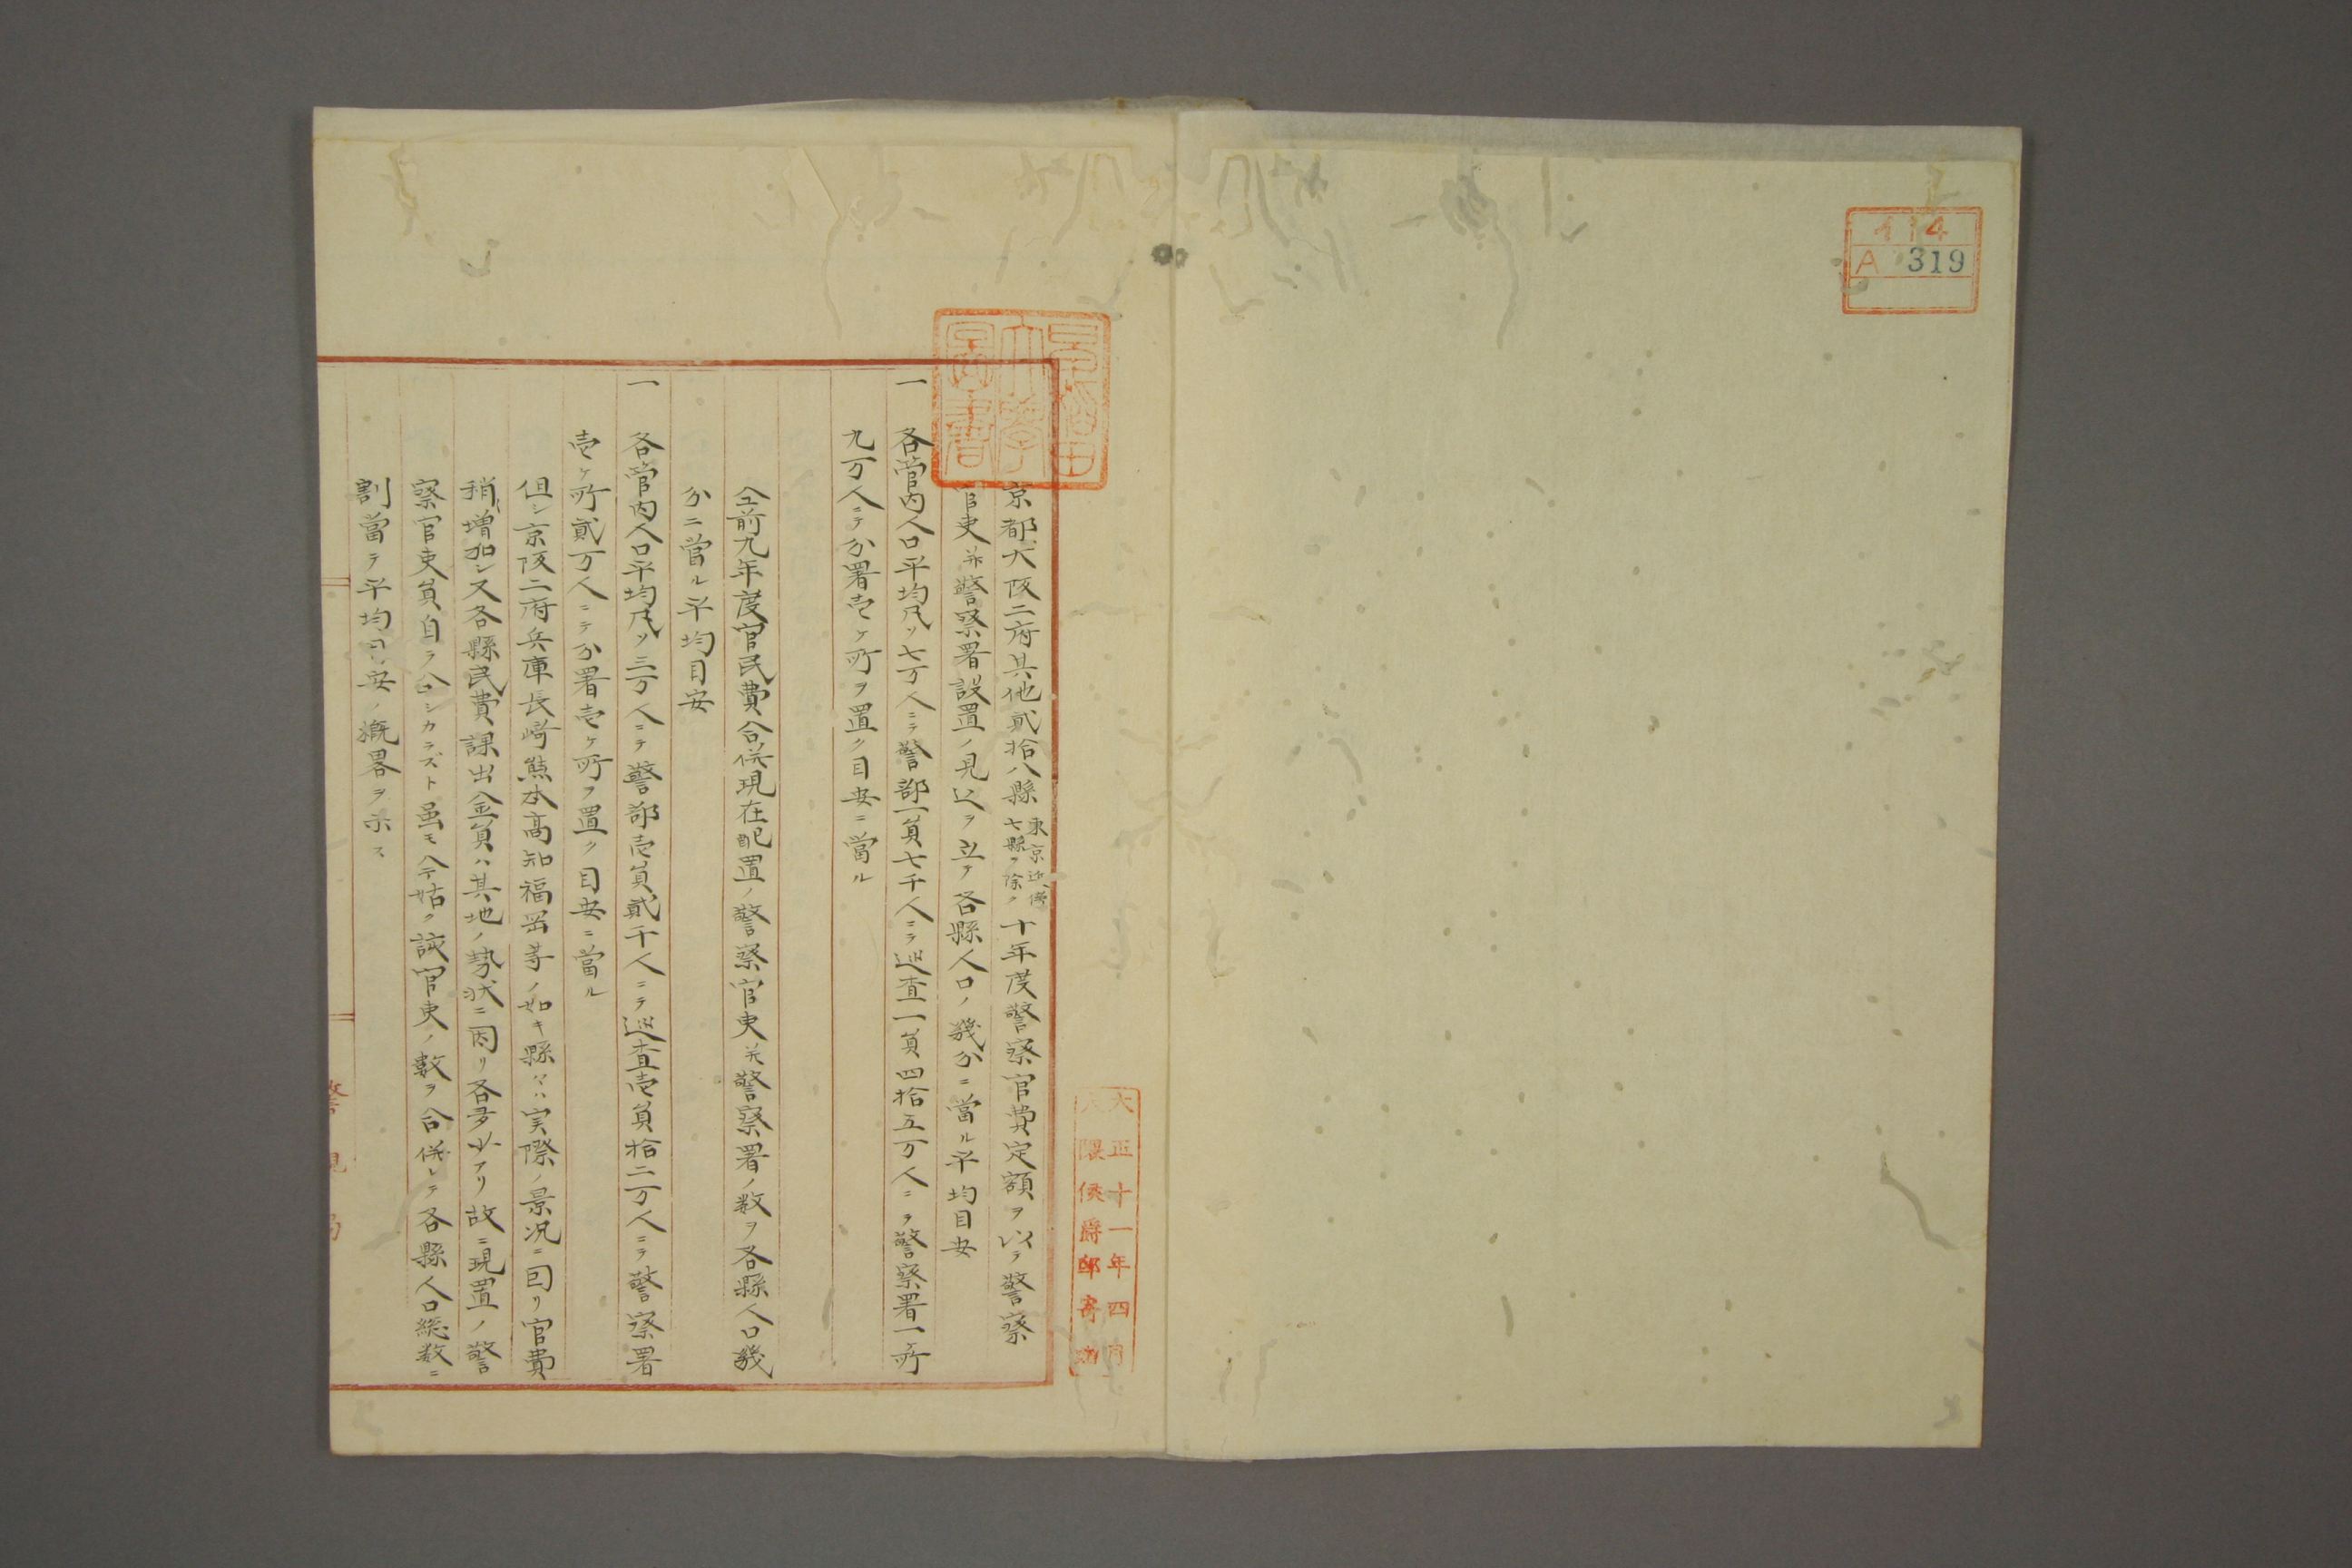 114
A 319
早稲田大學圖書
大正十一年四月
大隈侯爵邸寄贈
京都大阪二府其他貳拾八縣東京近傍七縣ヲ除ク十年度警察官費定額ヲ以テ警察
官吏并警察署設置ノ見込ヲ立テ各縣人口ノ幾分ニ當ル平均目安
一各管内人口平均凡ソ七万人ニテ警部一員七千人ニテ巡査一員四拾五万人ニテ警察署一ヶ所
九万人ニテ分署壱ヶ所ヲ置ク目安ニ當ル
仝前九年度官民費合併現在配置ノ警察官吏并警察署ノ数ヲ各縣人口幾
分ニ當ル平均目安
一各管内人口平均凡ソ三万人ニテ警部壱員貳千人ニテ巡査壱員拾二万人ニテ警察署
壱ヶ所貳万人ニテ分署壱ヶ所ヲ置ク目安ニ當ル
但シ京阪二府兵庫長崎熊本高知福岡等ノ如キ縣々ハ実際ノ景况ニ因リ官費
稍増加シ又各縣民費課出金員ハ其地ノ勢状ニ因リ各多少アリ故ニ現置ノ警
察官吏員自ラ仝シカラズト虽モ今姑ク該官吏ノ數ヲ合併シテ各縣人口総数ニ
割當テ平均目安ノ概畧ヲ示ス
警視局